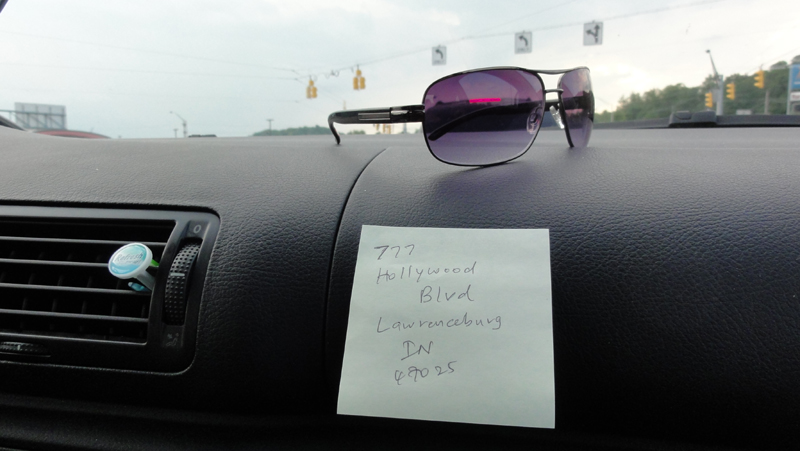 777
Hollywood
Blvd
Lawrenceburg
IN
47025